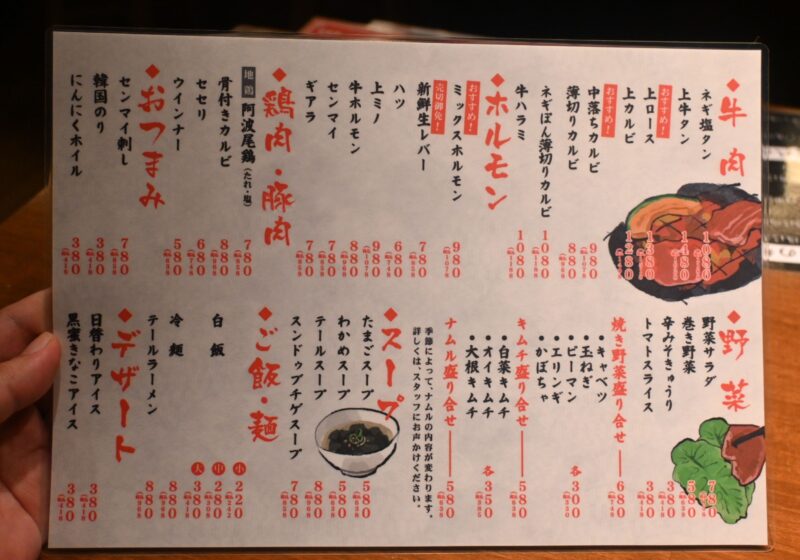 ◆牛肉
ネギ塩タン
上牛タン 1480
おすすめ!
上ロース 1380
上カルビ 1280
おすすめ!
中落ちカルビ 980
薄切りカルビ 880
ネギぽん薄切りカルビ 1080
牛ハラミ 1080
◆ホルモン
おすすめ!
ミックスホルモン 980
売切御免!
新鮮生レバー 780
ハツ 680
上ミノ 980
牛ホルモン 880
センマイ 780
ギアラ 780
◆鶏肉・豚肉
地鶏 阿波尾鶏(たれ・塩) 780
骨付きカルビ 880
セセリ 680
ウインナー 580
◆おつまみ
センマイ刺し 780
韓国のり 380
にんにくホイル 380
◆野菜
野菜サラダ 780
巻き野菜 580
辛みそきゅうり 380
トマトスライス 380
焼き野菜盛り合せ 680
・キャベツ
・玉ねぎ
・ピーマン 各300
・エリンギ
・かぼちゃ
キムチ盛り合せ 580
・白菜キムチ
・オイキムチ 各350
・大根キムチ
ナムル盛り合せ 580
季節によって、ナムルの内容が変わります。
詳しくは、スタッフにお声かけください。
◆スープ
たまごスープ 580
わかめスープ 580
テールスープ 880
スンドゥブチゲスープ 780
◆ご飯・麺
白飯 小 220 中 280 大
冷麺 880
テールラーメン 880
◆デザート
日替わりアイス 380
黒蜜きなこアイス 380